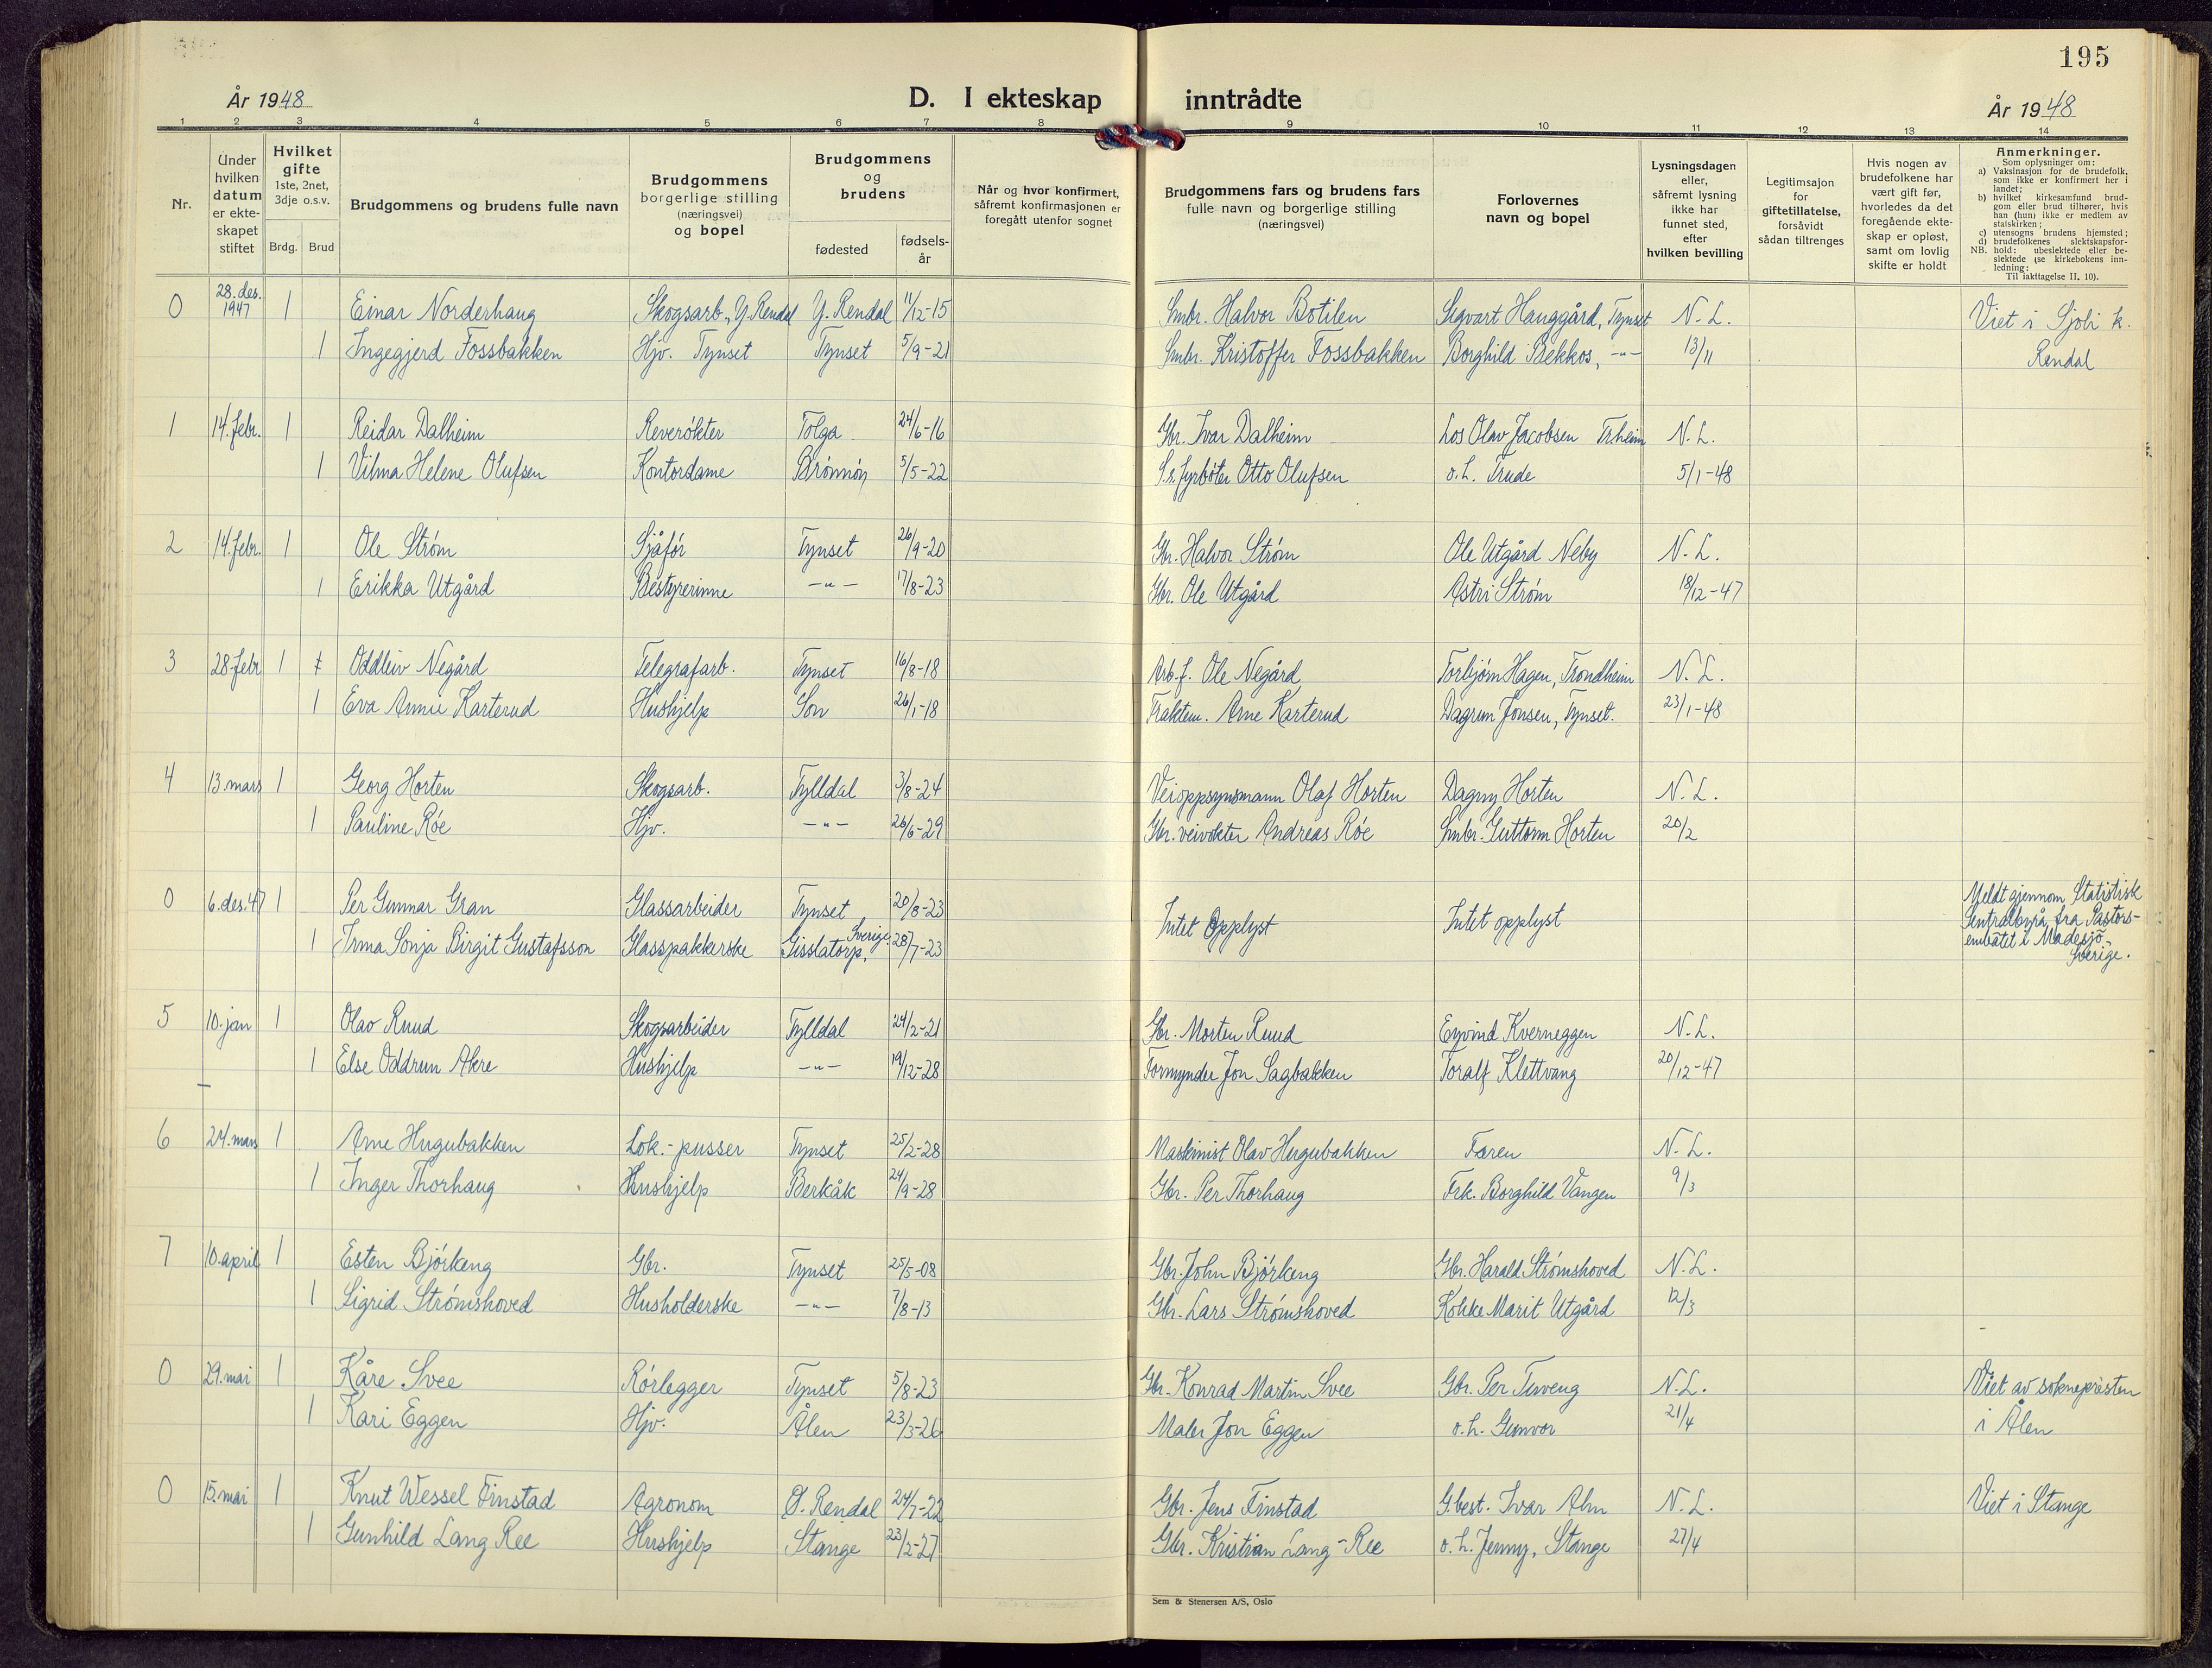 195
År 1948
D. I ekteskap inntrådte
År 1948
1 2 3 4 5 6 7 8 9 10 11 12 13 14
Nr.
Under hvilken datum er ekte-skapet stiftet
Hvilket gifte 1ste, 2net, 3dje o.s.v.
Brdg. Brud
Brudgommens og brudens fulle navn
Brudgommens borgerlige stilling (næringsvei) og bopel
Brudgommens og brudens
fødested fødsels-år
Når og hvor konfirmert, såfremt konfirmasjonen er foregått utenfor sognet
Brudgommens fars og brudens fars fulle navn og borgerlige stilling (næringsvei)
Forlovernes navn og bopel
Lysningsdagen eller, såfremt lysning ikke har funnet sted, efter hvilken bevilling
Legitimsajon for giftetillatelse, forsåvidt sådan tiltrenges
Hvis nogen av brudefolkene har vært gift før, hvorledes da det foregående ekte-skap er opløst, samt om lovlig skifte er holdt
Anmerkninger.
Som oplysninger om:
a) Vaksinasjon for de brudefolk, som ikke er konfirmert her i landet;
b) hvilket kirkesamfund brud-gom eller brud tilhører, hvis han (hun) ikke er medlem av statskirken;
c) utensogns brudens hjemsted;
d) brudefolkenes slektskapsfor-
NB. hold: ubeslektede eller be-slektede (se kirkebokens inn-ledning:
Til iakttagelse II, 10).
0 28. des. 1947 1 Einar Norderhaug Skogsarb., Y. Rendal Y. Rendal 11/12-15 Smbr. Halvor Botilen Segvart Hanggård, Tynset N. L. Viet i Sjoli k.
1 Ingegjerd Fossbakken Hjv. Tynset Tynset 5/9-21 Smbr. Kristoffer Fossbakken Borghild Bekkos, -"- 13/11 Rendal
1 14. febr. 1 Reidar Dalheim Reverökter Tolga 24/6-16 Gbr. Ivar Dalheim Los Olav Jacobsen Tr.heim N. L.
1 Vilma Helene Olufsen Kontordame Brönnöy 5/5-22 S.s. fyrböter Otto Olufsen o. h. Trude 5/1-48
2 14. febr. 1 Ole Ström Sjåför Tynset 26/9-20 Gbr. Halvor Ström Ole Utgård Neby N. L.
1 Erikka Utgård Bestyrerinne -"- 17/8-23 Gbr. Ole Utgård Astri Ström 18/12-47
3 28. febr 1 Oddleiv Negård Telegrafarb. Tynset 16/8-18 Arb.f. Ole Negård Torbjörn Hagen, Trondheim N. L.
1 Eva Annie Karterud Hushjelp Son 26/1-18 Traktem. Arne Karterud Dagrun Jonsen, Tynset. 23/1-48
4 13. mars 1 Georg Horten Skogsarb. Tylldal 3/8-24 Veioppsynsmann Olaf Horten Dagny Horten N. L.
1 Pauline Röe Hjv. -"- 26/6-29 Gbr. veivokter Andreas Röe Smbr. Guttorm Horten 20/2
0 6. des. 47 1 Per Gunnar Gran Glassarbeider Tynset 20/8-23 Intet Opplyst Intet opplyst Meldt gjennom Statistisk
1 Irma Sonja Birgit Gustafsson Glasspakkerske Gisslatorp, Sverige 28/7-23 Sentralbyrå, fra Pastors-
embatet i Madesjö,
Sverige.
5 10. jan 1 Olav Ruud Skogsarbeider Tylldal 24/2-21 Gbr. Morten Ruud Eyvind Kverneggen N. L.
1 Else Oddrun Akre Hushjelp -"- 19/12-28 Formynder Jon Sagbakken Toralf Klettvang 20/12-47
6 24. mars 1 Arne Hugubakken Lok.-pusser Tynset 25/2-28 Maskinist Olav Hugubakken Faren N. L.
1 Inger Thorhaug Hushjelp Berkåk 24/9-28 Gbr. Per Thorhaug Frk. Borghild Vangen 9/3
7 10. april 1 Esten Björkeng Gbr. Tynset 25/5-08 Gbr. John Björkeng Gbr. Harald Strömshoved N. L.
1 Sigrid Strömshoved Husholderske -"- 7/8-13 Gbr. Lars Strömshoved Kokke Marit Utgård 12/3
0 29. mai 1 Kåre Svee Rörlegger Tynset 5/8-23 Gbr. Konrad Martin Svee Gbr. Per Tuveng N. L. Viet av soknepresten
1 Kari Eggen Hjv. Ålen 23/3-26 Maler Jon Eggen o. h. Gunvor 21/4 i Ålen
0 15. mai 1 Knut Wessel Finstad Agronom Ø. Rendal 24/7-22 Gbr. Jens Finstad G.best. Ivar Alm N. L. Viet i Stange
1 Gunhild Lang Ree Hushjelp Stange 23/2-27 Gbr. Kristian Lang-Ree o. h. Jenny, Stange 27/4
Sem & Stenersen A/S, Oslo